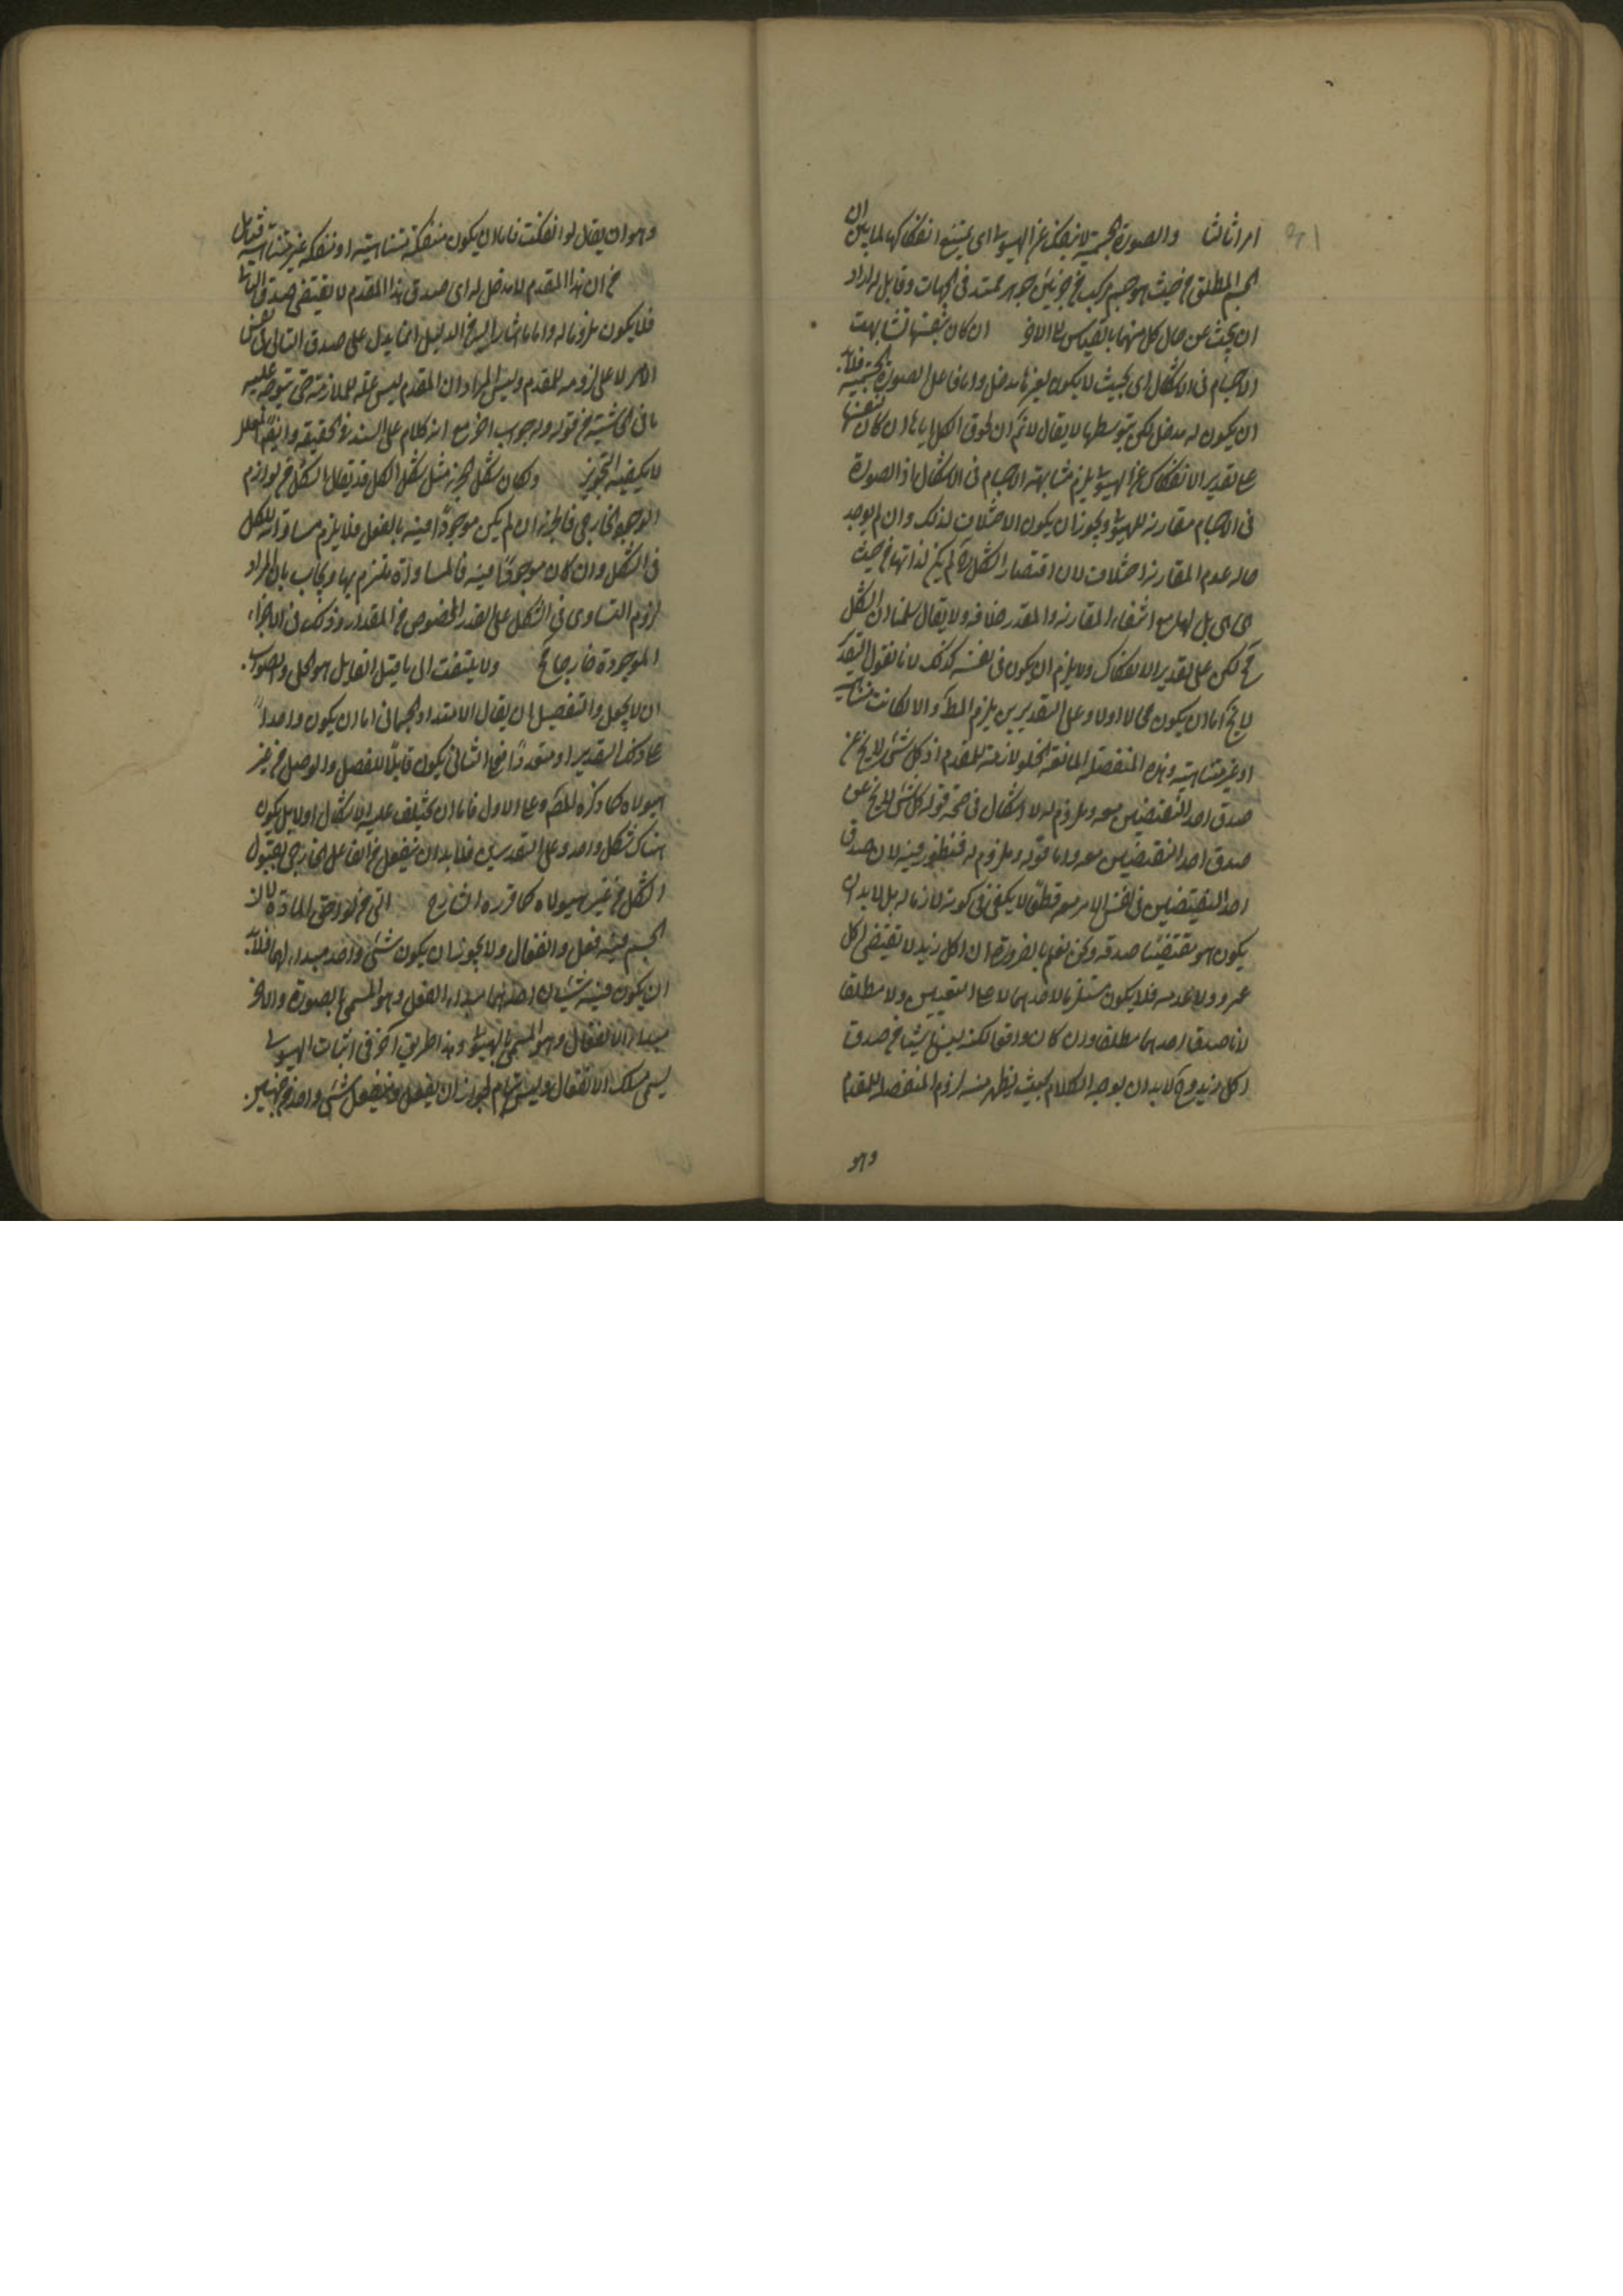 امرا ثالثا والصورة الجسمية لا تنفك عن الهيولى اى يمتنع انفكاكها لما بين ان
الجسم المطلق من حيث هو جسم مركب من جزئين جوهر ممتد فى الجهات وقابل له اراد
ان يبحث عن حال كل منهما بالقياس الى الاخر ان كان بنفسها تشابهت
الاجسام فى الاشكال اى بحيث لا يكون لغيرها مدخل واما فاعل الصورة الجسمية فلا بد
ان يكون له مدخل لكن بتوسطها لا يقال لا نم ان لحوق الكل اياها ان كان بنفسها
على تقدير الانفكاك عن الهيولى يلزم مشابهة الاجسام فى الاشكال اذ الصورة
فى الاجسام مقارنة للهيولى ويجوز ان يكون الاختلاف لذلك وان لم يوجد
حال عدم المقارنة اختلاف لان اقتضاء الشكل ح لم يكن لذاتها من حيث
هى هى بل لها مع انتفاء المقارنة والمقدر خلافه ولا يقال سلمنا ان الشكل
ح لكن على تقدير الانفكاك ولا يلزم ان يكون فى نفسه كذلك لانا نقول التقدير
لا يخ اما ان يكون محالا اولا وعلى التقديرين يلزم المط والا لكانت متناهية
او غير متناهية وهذه المنفصلة المانعة الخلو لازمة للمقدم اذ كل شئ لا يخ عن
صدق احد النقيضين معه وملزوم له لا اشكال فى صحة قوله كل شئ لا يخ عن
صدق احد النقيضين معه واما قوله وملزوم له فمنظور فيه لان صدق
احد النقيضين فى نفس الامر معه قطعا لا يكفى فى كونه لازما له بل لا بد ان
يكون هو مقتضيا صدقه ونحن نعلم بالضرورة ان اكل زيد لا يقتضى اكل
عمرو ولا عدمه فلا يكون مستلزما لاحدهما لا على التعيين ولا مطلقا
لان صدق احدهما مطلقا وان كان واقعا لكنه ليس ناشيا من صدق
اكل زيد وح لا بد ان يوجه الكلام بحيث يظهر منه لزوم المنفصلة للمقدم
وهو
وهو ان يقال لو انفكت فاما ان يكون منفكة متناهية او منفكة غير متناهية قيل
من ان هذا المقدم لا مدخل له اى صدق هذا المقدم لا يقتضى صدق التالى
فلا يكون ملزوما له واما ما اشار اليه من الدليل انما يدل على صدق التالى فى نفس
الامر لا على لزومه للمقدم وليس المراد ان المقدم ليس علة للملازمة حتى يتوجه عليه
ما فى الحاشية من قوله وله جواب اخر مع انه كلام على السند فى الحقيقة وايضا المعلل
لا يكفيه التجويز وكان شكل الجزء مثل شكل الكل قد يقال الشكل من لوازم
الوجود الخارجى فالجزء ان لم يكن موجودا فيه بالفعل فلا يلزم مساواته للكل
فى الشكل وان كان موجودا فيه فالمساواة يلتزم بها ويجاب بان المراد
لزوم التساوى فى الشكل على القدر المخصوص من المقدار وذلك فى الاجزاء
الموجودة خارجا مح ولا يلتفت الى ما قيل القابل هو الكل والصواب
ان لا يجعل والتفصيل ان يقال الامتداد الجسمانى اما ان يكون واحدا
على ذلك التقدير او متعددا فعلى الثانى يكون قابلا للفصل والوصل من غير
هيولاه كما ذكره المص وعلى الاول فاما ان يختلف عليه الاشكال اولا بل يكون
هناك شكل واحد وعلى التقديرين فلا بد ان ينفعل من الفاعل الخارجى بقبول
الشكل من غير هيولاه كما قرره الشارح التى من لواحق المادة لان
الجسم فيه فعل وانفعال ولا يجوز ان يكون شئ واحد مبدا لهما فلا بد
ان يكون فيه شيئان احدهما مبدا الفعل وهو المسمى بالصورة والاخر
مبدا الانفعال وهو المسمى بالهيولى وهذا طريق اخر فى اثبات الهيولى
يسمى مسلك الانفعال وليس بتام لجواز ان يفعل وينفعل شئ واحد من جهتين